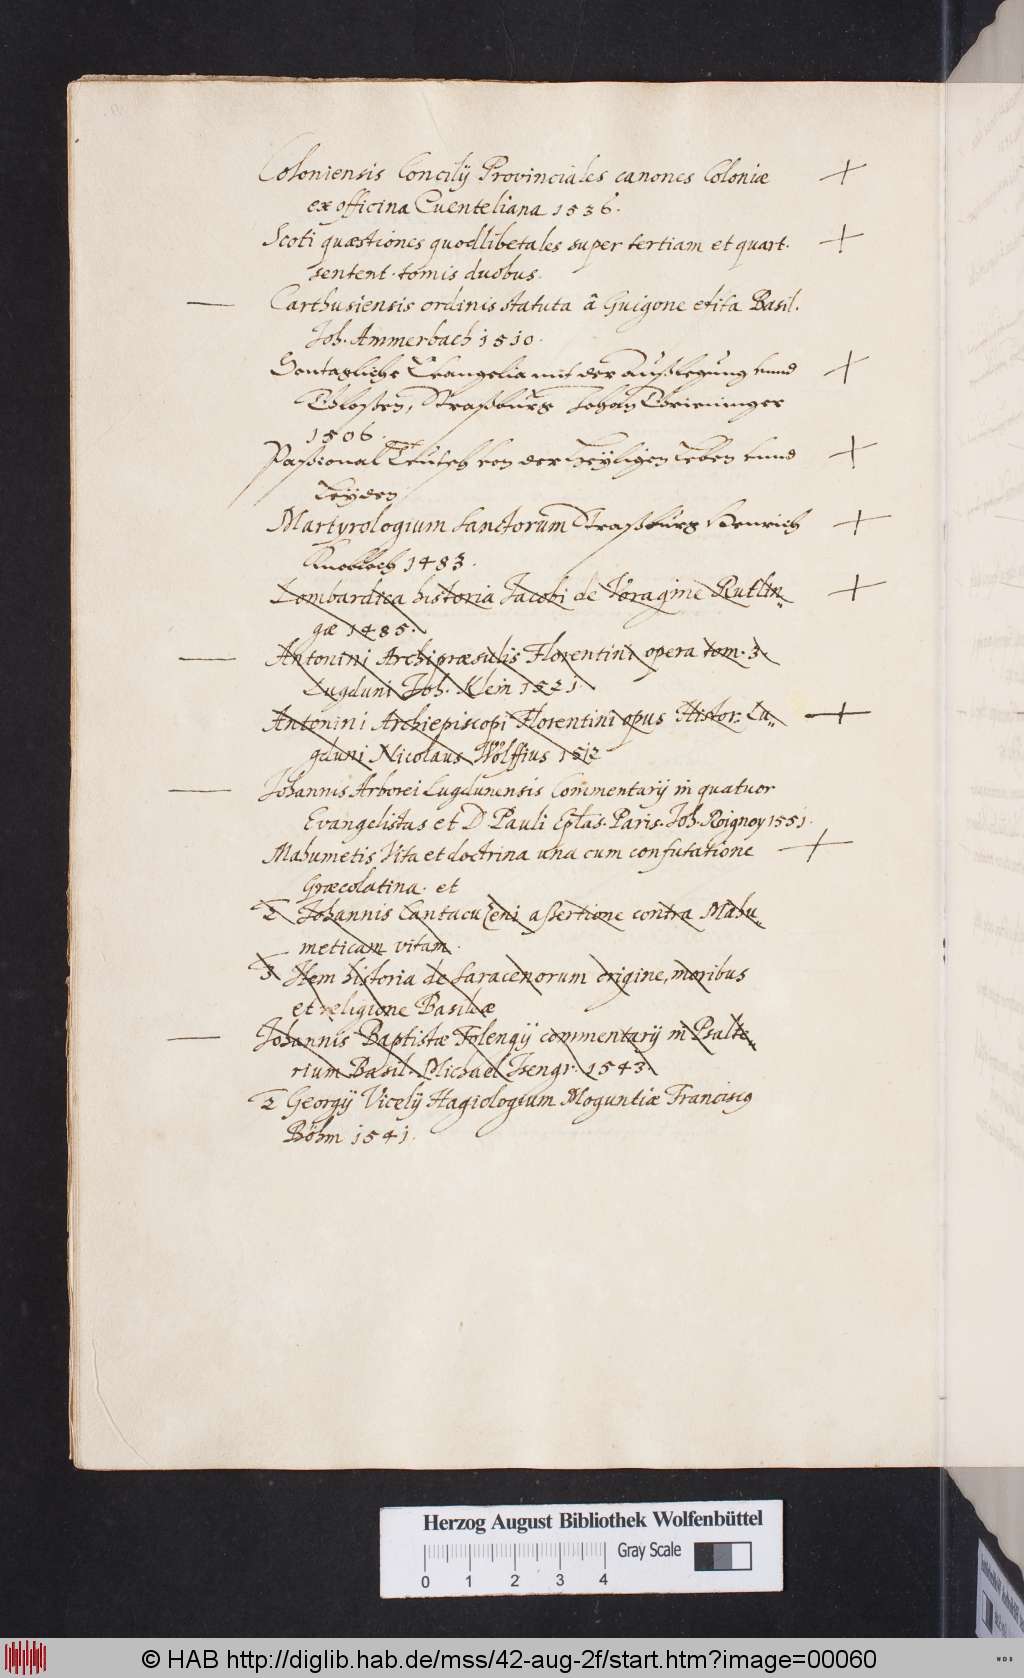 Coloniensis Concilij Provinciales canones Coloniæ +
ex officina Quenteliana 1536.
Scoti quæstiones quodlibetales super tertiam et quart. +
sentent. tomis duobus.
— Carthusiensis ordinis statuta â Guigone edita Basil.
Joh. Ammerbach 1510.
Sontagliche Evangelia mit der Außlegung unnd +
Gloßen, Straßburg Johan Grieninger
1506.
Paßional Teütsch von der Heÿligen Leben unnd +
Leÿden
Martyrologium Sanctorum Straßburg Henrich +
Knobloch 1483.
Lombardica historia Jacobi de Voragine Rutlin= +
gæ 1485.
— Antonini Archipræsulis Florentini opera tom. 3.
Lugduni Joh. Klein 1521.
Antonini Archiepiscopi Florentini opus Histor: Lu= +
gduni Nicolaus Wolffius 1512
— Johannis Arborei Lugdunensis Commentarij in quatuor
Evangelistas et D Pauli Eplas. Paris. Joh. Roignoy 1551.
Mahumetis Vita et doctrina una cum confutatione +
Græcolatina. et
2 Johannis Cantacuzeni assertione contra Mahu=
meticam vitam.
3 Item historia de Saracenorum origine, moribus
et religione Basileæ
— Johannis Baptistæ Folengij commentarij in Psalte=
rium Basil. Michael Isengr. 1543.
2 Georgij Vicelij Hagiologium Moguntiæ Franciscus
Böhm 1541.
Herzog August Bibliothek Wolfenbüttel
Gray Scale
0 1 2 3 4
© HAB http://diglib.hab.de/mss/42-aug-2f/start.htm?image=00060